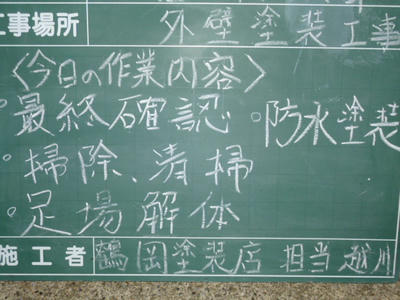 工事場所 外壁塗装工事
〈今日の作業内容〉
・最終確認 ・防水塗装
・掃除、清掃
・足場解体
施工者 鶴岡塗装店 担当 越川